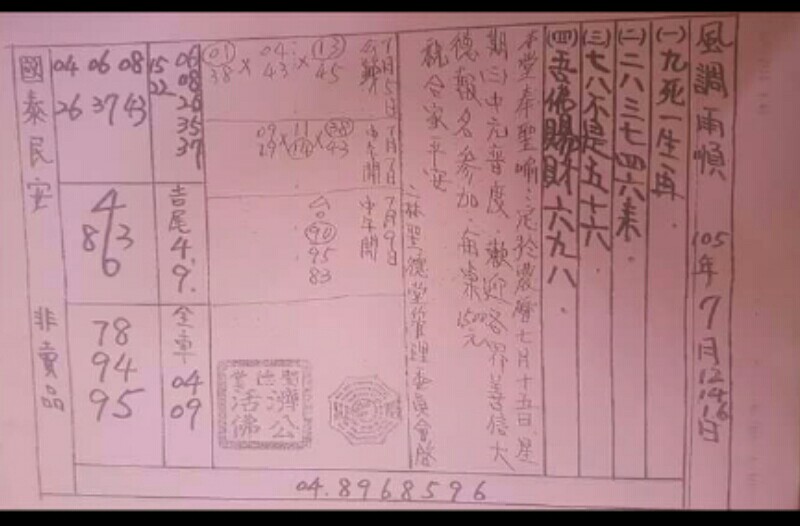 風調雨順 105年7月12.14.16日
(一)九死一生再.
(二)二八三七四六來.
(三)七八不是五十六.
(四)吾佛賜財六九八.
本堂奉聖喻:定於農曆七月十五日星
期三中元普度.歡迎各界善信大
德報名參加.每桌1500元
祝合家平安
二林聖德堂管理委員會啟
7月5日
13 45
× 04 43
× 01 38
7月7日
中2開
38 43
× 11
× 09 29
7月9日
中午開
90
95
83
濟公
活佛
06
08
26
35
37
15
22
吉尾4.9.
全車 04
09
04 06 08
26 37 43
4
8 3
6
78
94
95
國泰民安 非賣品
04.8968596